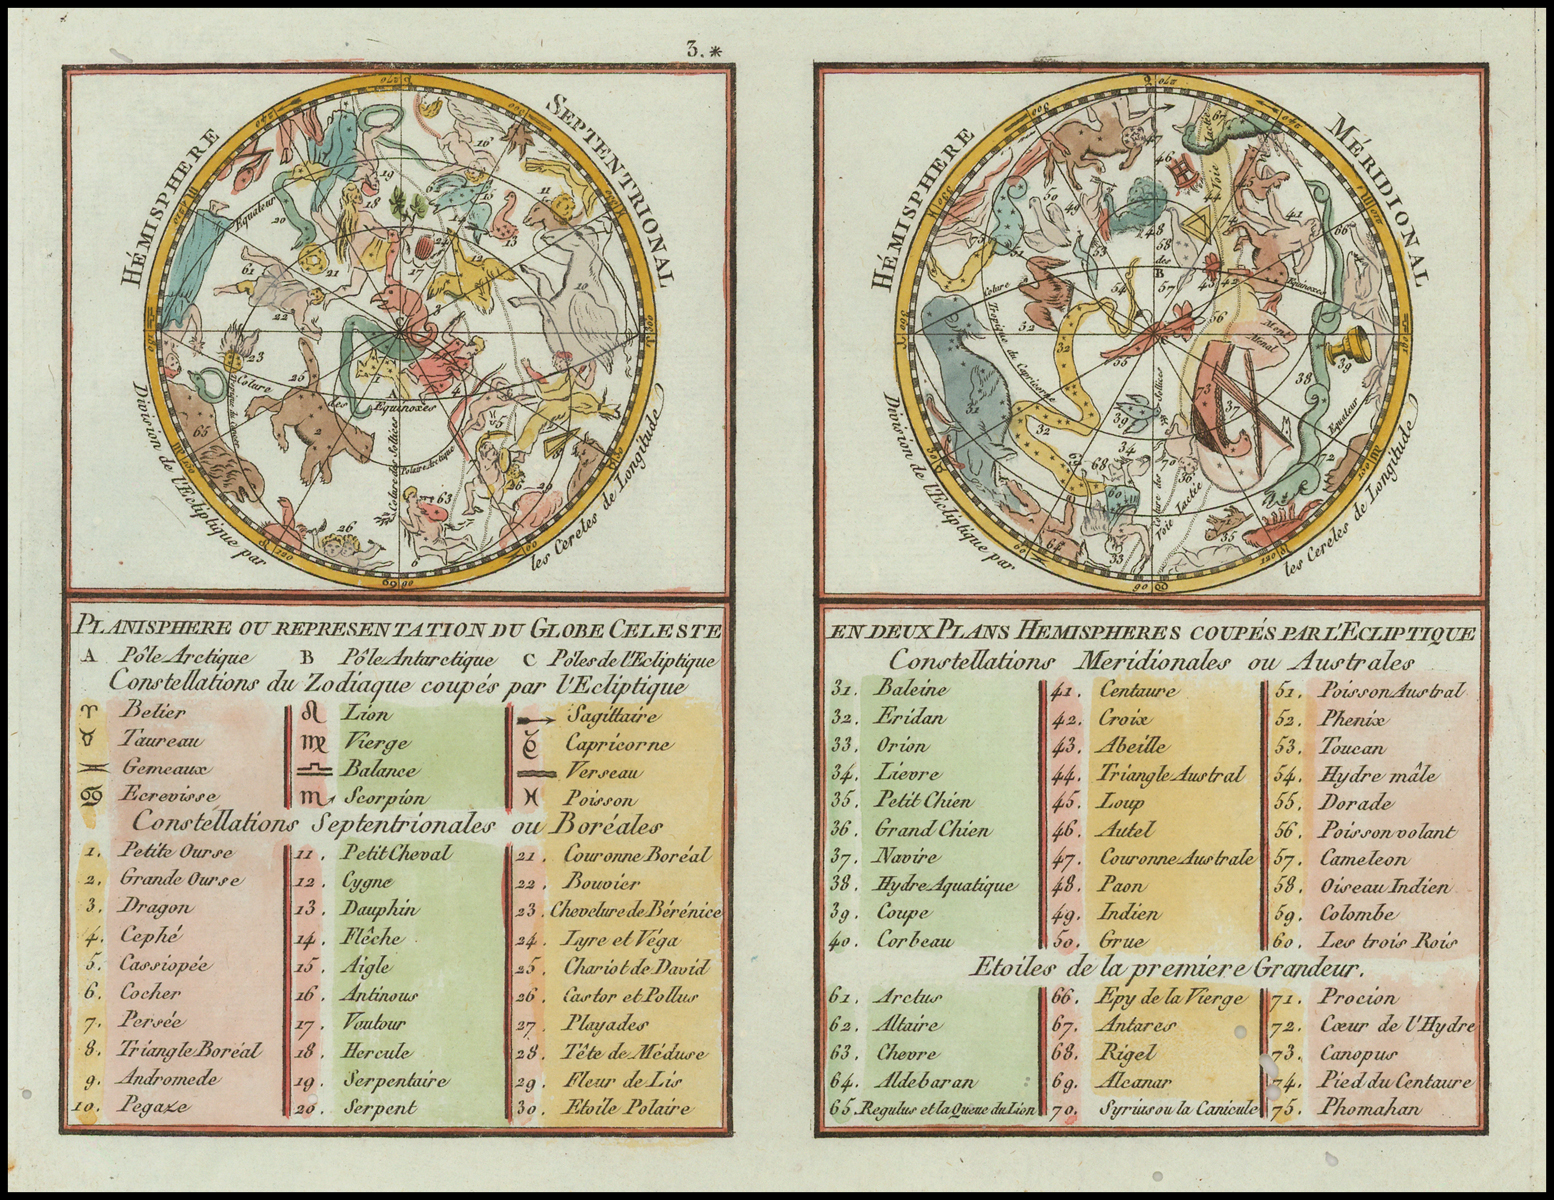 3.*
HÉMISPHERE SEPTENTRIONAL
Division de l'Ecliptique par les Cercles de Longitude
Equateur
Colure des Equinoxes
Tropique du Cancer
Colure des Solstices
Polaire Arctique
HÉMISPHERE MÉRIDIONAL
Division de l'Ecliptique par les Cercles de Longitude
Colure des Equinoxes
Tropique du Capricorne
Voie Lactée
Equateur
PLANISPHERE OU REPRESENTATION DU GLOBE CELESTE
A Pôle Arctique B Pôle Antarctique C Pôles de l'Ecliptique
Constellations du Zodiaque coupés par l'Ecliptique
♈ Belier ♌ Lion Sagittaire
♉ Taureau ♍ Vierge ♑ Capricorne
Gemeaux ♎ Balance Verseau
♋ Ecrevisse ♏ Scorpion ♓ Poisson
Constellations Septentrionales ou Boréales
1. Petite Ourse 11. Petit Cheval 21. Couronne Boréal
2. Grande Ourse 12. Cygne 22. Bouvier
3. Dragon 13. Dauphin 23. Chevelure de Bérénice
4. Cephé 14. Flêche 24. Lyre et Véga
5. Cassiopée 15. Aigle 25. Chariot de David
6. Cocher 16. Antinous 26. Castor et Pollus
7. Persée 17. Voutour 27. Playades
8. Triangle Boréal 18. Hercule 28. Tête de Méduse
9. Andromede 19. Serpentaire 29. Fleur de Lis
10. Pegaze 20. Serpent 30. Etoile Polaire
EN DEUX PLANS HEMISPHERES COUPÉS PAR L'ECLIPTIQUE
Constellations Meridionales ou Australes
31. Baleine 41. Centaure 51. Poisson Austral
32. Eridan 42. Croix 52. Phenix
33. Orion 43. Abeille 53. Toucan
34. Lievre 44. Triangle Austral 54. Hydre mâle
35. Petit Chien 45. Loup 55. Dorade
36. Grand Chien 46. Autel 56. Poisson volant
37. Navire 47. Couronne Australe 57. Cameleon
38. Hydre Aquatique 48. Paon 58. Oiseau Indien
39. Coupe 49. Indien 59. Colombe
40. Corbeau 50. Grue 60. Les trois Rois
Etoiles de la premiere Grandeur.
61. Arctus 66. Epy de la Vierge 71. Procion
62. Altaire 67. Antares 72. Cœur de l'Hydre
63. Chevre 68. Rigel 73. Canopus
64. Aldebaran 69. Alcanar 74. Pied du Centaure
65. Regulus et la Queue du Lion 70. Syrius ou la Canicule 75. Phomahan